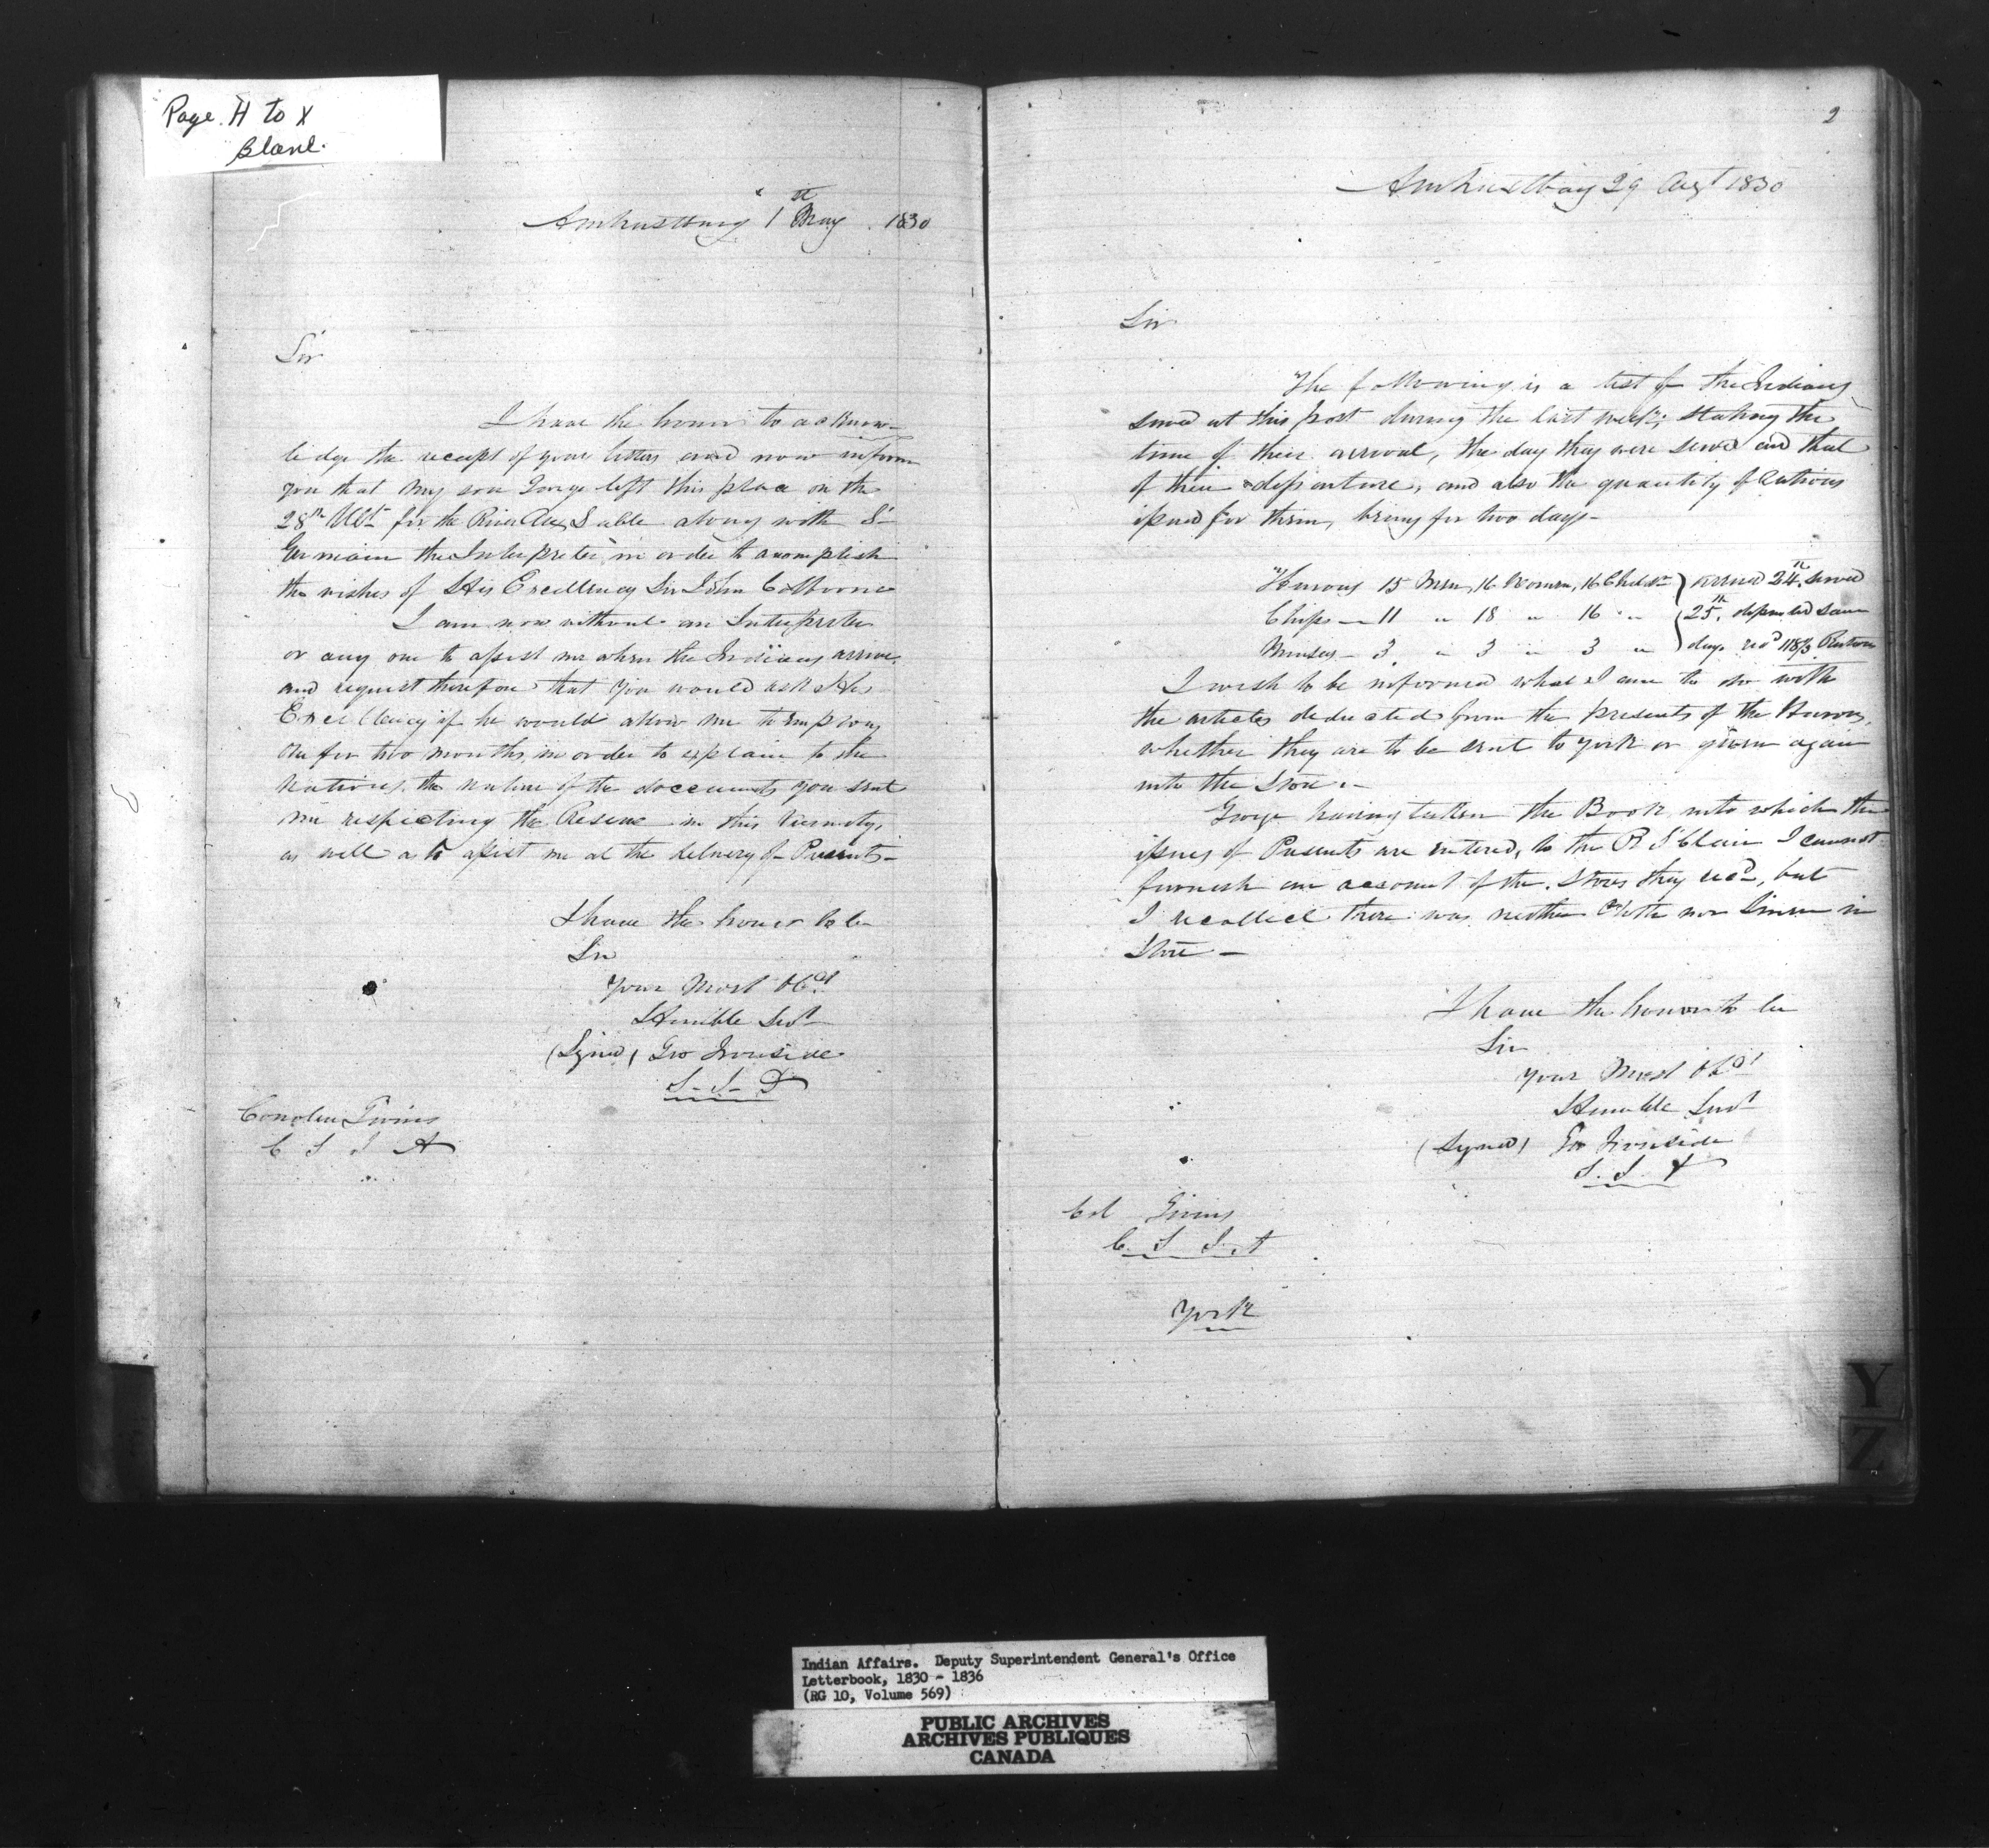 Page. H to X
Blank.
Amherstburg 1st May. 1830
Sir
I have the honor to acknow-
ledge the receipt of your letters and now inform
you that my son George left this place on the
28th Ulto for the River Aux Sable along with St
Germain the Interpreter in order to accomplish
the wishes of His Excellency Sir John Colborne
I am now without an Interpreter
or any one to assist me when the Indians arrive,
and request therefore that you would ask His
Excellency if he would allow me to employ
one for two months, in order to explain to the
Nations, the nature of the documents you sent
me respecting the Reserve in this vicinity,
as well as to assist me at the delivery of Presents-
I have the honor to be
Sir
Your Most Obdt
Humble Servt
(Signed) Geo Ironside
S- I- D
Givins
C S I A
2
Amherstburg 29 Augt 1830
Sir
The following is a list of the Indians
served at this post during the last week; stating the
time of their arrival, the day they were served and that
of their departure, and also the quantity of Rations
issued for them, being for two days-
Hurons 15 Men, 16 Women, 16 Childn } arrived 24th, served
Chips— 11 " 18 " 16 " { 25th, departed same
Munseys— 3 " 3 " 3 " } day. recd 118⅔ Rations
I wish to be informed what I am to do with
the articles deducted from the presents of the Hurons,
whether they are to be sent to York or given again
into the Store.-
George having taken the Book, into which the
issues of Presents are entered, to the R St Clair I cannot
furnish an account of the Stores they recd, but
I recollect there was neither Cloth nor Linen in
Store-
I have the honor to be
Sir
Your Most Obdt
Humble Servt
(Signed) Geo Ironside
S. I.
Col Givins
C. S I. A
York
Y
Z
Indian Affairs. Deputy Superintendent General's Office
Letterbook, 1830 - 1836
(RG 10, Volume 569)
PUBLIC ARCHIVES
ARCHIVES PUBLIQUES
CANADA